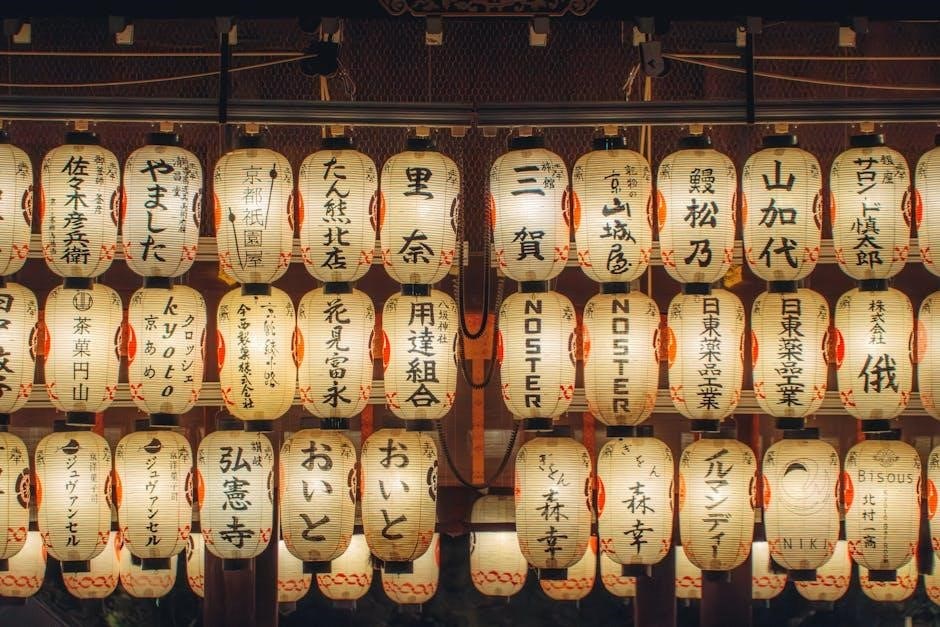 佐々木彦兵衛
やました
京都祇園屋
たん熊北店
里奈
三賀
京山城屋
鰻松乃
山加代
サロンド慎太郎
茶菓円山
タロッシェ
kyoto
京あめ
今西製菓株式会社
花見富永
八坂神社
用達組合
NOSTER
NOSTER
日東薬品工業
日東薬品工業
株式会社
俄
ジュヴァンセル
ジュヴァンセル
讃岐
弘憲寺
おいと
おいと
ぎをん
森幸
ぎをん
森幸
ルマンディー
NIKI
Bisous
北村一高